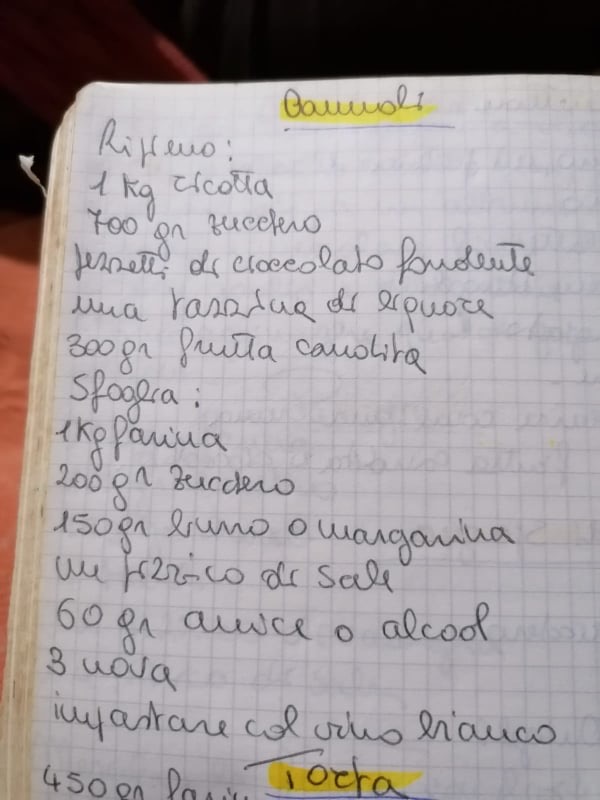 Cannoli
Ripieno:
1 Kg ricotta
700 gr zucchero
pezzetti di cioccolato fondente
una tazzina di liquore
300 gr frutta candita
Sfoglia:
1 Kg farina
200 gr zucchero
150 gr burro o margarina
un pizzico di sale
60 gr anice o alcool
3 uova
impastare col vino bianco
Torta
450 gr